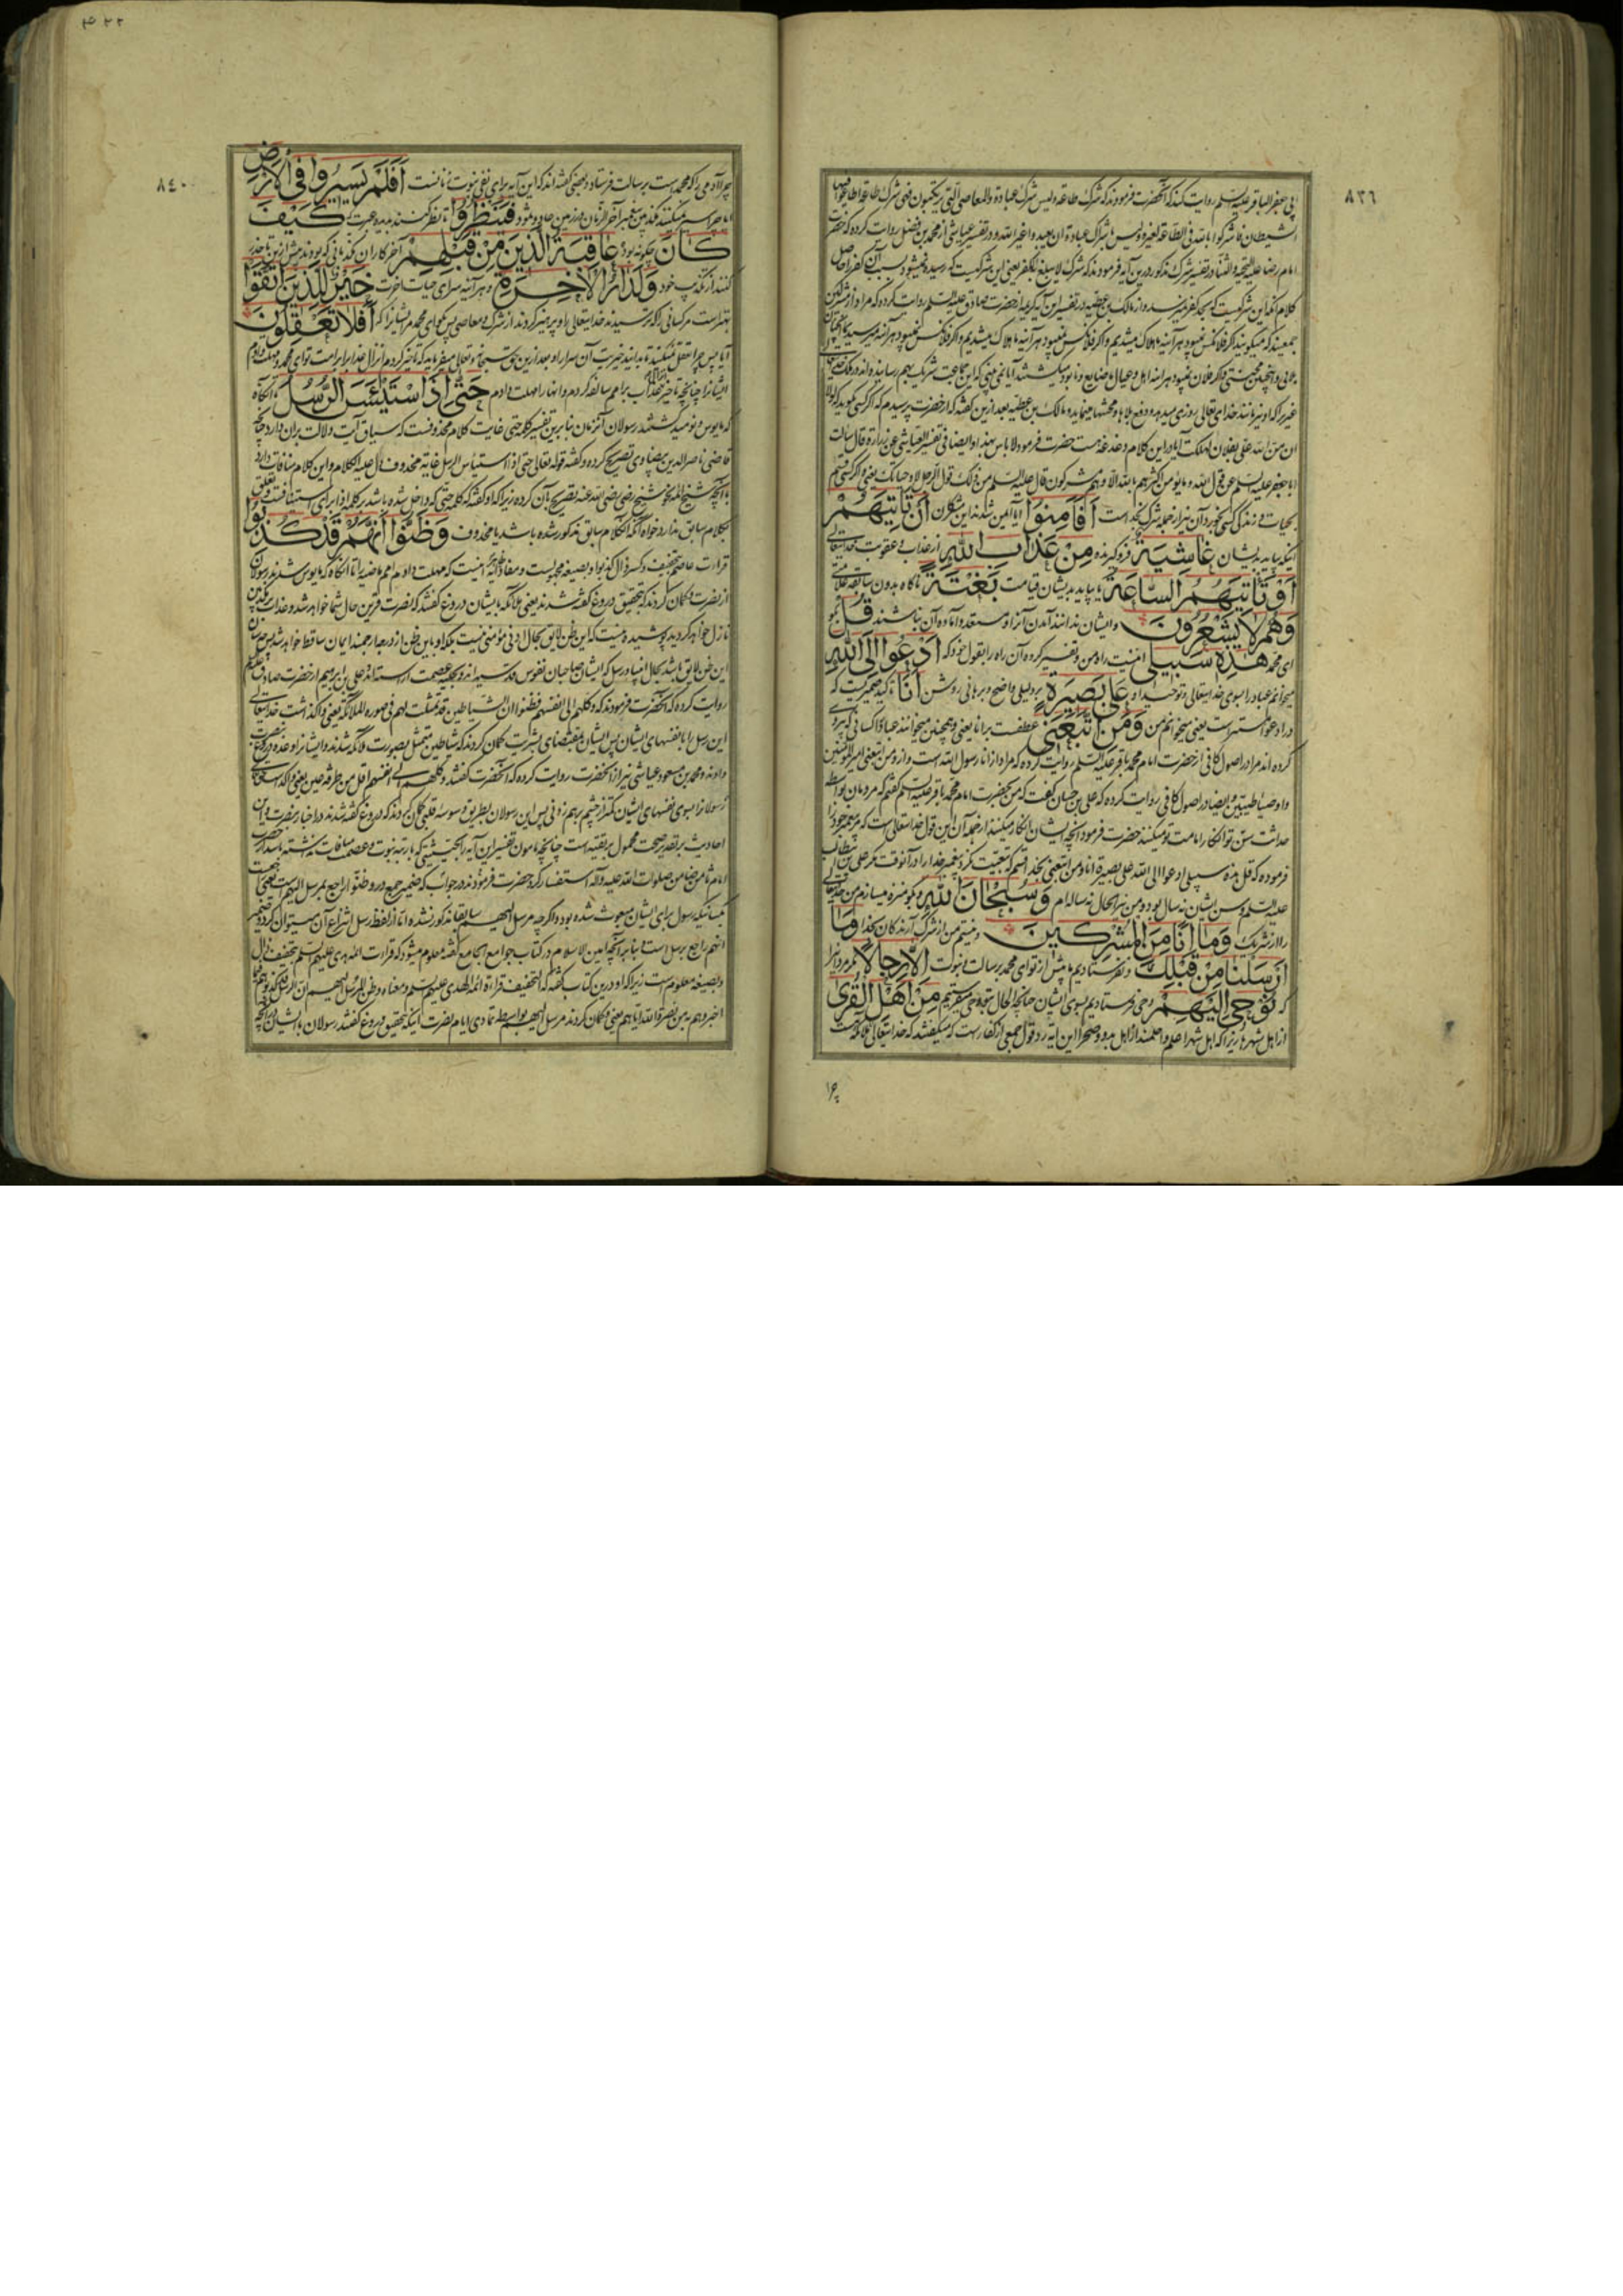 ٨٣٦
ابی جعفر الباقر علیه السلم روایت کنند که آنحضرت فرمودند که شرک طاعة ولیس شرک عبادة والمعاصی الّتی یرتکبون فهی شرک طاعة اطاعوا فیها
الشیطان فاشرکوا بالله فی الطاعة لغیره ولیس باشراک عبادة ان یعبدوا غیر الله و در تفسیر عیاشی از محمد بن فضیل روایت کرده که حضرت
امام رضا علیه التحیة والثنا در تفسیر شرک مذکور درین آیه فرمودند که شرک لا یبلغ به الکفر یعنی این شرکیست که رسیده نمیشود بسبب آن کفر را حاصل
کلام آنکه این شرکیست که بحد کفر نمیرسد و از مالک بن عطیه در تفسیر این آیه کریمه از حضرت صادق علیه السلم روایت کرده که مراد از مشرکین
جمعیند که میگویند که اگر فلانکس نمیبود هر آینه ما هلاک میشدیم و اگر فلانکس نمیبود هر آینه
بلایی و همچنین محنتی و اگر فلان نمیبود هر آینه اهل و عیال من ضایع و نابود میشدند آیا نمی بینی که این جماعت شریک بهم رسانیده اند در ملک خدا
غیر را که او نیز مانند خدای تعالی روزی میدهد و دفع بلاها و محنتها مینماید و مالک بن عطیه بعد ازین گفته که از حضرت پرسیدم که اگر کسی بگوید که لولا
ان من الله علی بفلان لهلکت آیا در این کلام دغدغه هست حضرت فرمود لا باس بهذا و ایضا فی تفسیر العیاشی عن زرارة قال سالت
ابا جعفر علیه السلم عن قول الله وما یؤمن اکثرهم بالله الا وهم مشرکون قال علیه السلم من ذلک قول الرجل لا وحیاتک یعنی اگر کسی قسم
بحیات و زندگی کسی بخورد آن نیز از جمله شرک بخداست اَفَاَمِنُوا آیا ایمن شده اند این مشرکون اَنْ تَأتِيَهُمْ
اینکه بیاید بدیشان غاشِيَةٌ فرو گیرنده مِنْ عَذابِ اللهِ از عذاب و عقوبت خدایتعالی
اَوْ تَأتِيَهُمُ السّاعَةُ یا بیاید بدیشان قیامت بَغْتَةً ناگاه بدون سابقه علامتی
وَهُمْ لا يَشْعُرُونَ و ایشان ندانند آمدن آنرا و مستعد و آماده آن نباشند قُلْ بگو
ای محمد هٰذِهِ سَبيلي اینست راه من و تفسیر کرده آن راه را بقول خود که اَدْعُوا اِلَى اللهِ
میخوانم عباد را بسوی خدایتعالی و توحید او عَلٰى بَصيرَةٍ بر دلیلی واضح و برهانی روشن اَنَا تاکید ضمیریست که
در ادعو مستتر است یعنی میخوانم من وَمَنِ اتَّبَعَني عطفست بر انا یعنی و همچنین میخوانند عباد را کسانی که پیروی
کرده اند مرا در اصول کافی از حضرت امام محمد باقر علیه السلم روایت کرده که مراد از انا رسول الله است و از ومن اتبعنی امیر المؤمنین
و اوصیاء طیبین و ایضا در اصول کافی روایت کرده که علی بن حسان گفت که من بحضرت امام محمد باقر علیه السلم گفتم که مردمان بواسطه
حداثت سن تو انکار امامت تو میکنند حضرت فرمود آنچه ایشان انکار میکنند از جمله آن این قول خدایتعالی است که مر پیغمبر خود را
فرموده که قل هذه سبیلی ادعوا الی الله علی بصیرة انا ومن اتبعنی بخدا قسم که تبعیت نکرد پیغمبر خدا را در آنوقت مگر علی بن ابیطالب
علیه السلم و سن ایشان نه سال بود و من نیز الحال نه ساله ام وَسُبْحانَ اللهِ و بگو منزه میسازم من خدایتعالی
را از شریک وَما اَنَا مِنَ الْمُشْرِكينَ و نیستم من از شرک آرندگان بخدا وَما
اَرْسَلْنا مِنْ قَبْلِكَ و نفرستادیم ما پیش از تو ای محمد برسالت و نبوت اِلّا رِجالًا مگر مردانی را
که نُوحي اِلَيْهِمْ وحی فرستادیم بسوی ایشان چنانچه الحال بتو وحی میفرستیم مِنْ اَهْلِ الْقُرٰى
از اهل شهرها زیرا که اهل شهرها اعلم و احلمند از اهل بدو و صحرا این آیه رد قول جمعی از کفار است که میگفتند که خدایتعالی
چرا
٨٤٠
چرا آدمی را که محمد است برسالت فرستاد و بعضی گفته اند که این آیه برای نفی نبوت زنانست اَفَلَمْ يَسيرُوا فِي الْاَرْضِ
آیا پس سیر نمیکنند مکذبین پیغمبر آخر الزمان در زمین عاد و ثمود فَيَنْظُرُوا تا نظر کنند بدیده عبرت كَيْفَ
كانَ چگونه بود عاقِبَةُ الَّذينَ مِنْ قَبْلِهِمْ آخر کار آن مکذبانی که بودند پیش از ایشان تا حذر
کنند از تکذیب خود وَلَدارُ الْاٰخِرَةِ و هر آینه سرای حیات آخرت خَيْرٌ لِلَّذينَ اتَّقَوْا
بهتر است مر کسانی را که ترسیدند خدایتعالی را و پرهیز کردند از شرک و معاصی پس بگو ای محمد مر ایشانرا که اَفَلا تَعْقِلُونَ
آیا پس چرا تعقل نمیکنید تا بدانید خیریت آن سرا را و بعد ازین حق سبحانه و تعالی میفرماید که تاخیر کردم انزال عذاب را بر امت تو ای محمد و مهلت دادم
ایشانرا چنانچه تاخیر عذاب بر امم سالفه کردم و آنها را مهلت دادم حَتّٰى اِذَا اسْتَيْئَسَ الرُّسُلُ تا آنگاه
که مایوس و نومید گشتند رسولان آنزمان بنا برین تفسیر کلمه حتی غایت کلام محذوفست که سیاق آیت دلالت بر آن دارد چنانچه
قاضی ناصر الدین بیضاوی تصریح کرده و گفته قوله تعالی حتی اذا استیأس الرسل غایة محذوف دل علیه الکلام و این کلام منافات دارد
با آنچه شیخ رضی رضی الله عنه تصریح بآن کرده زیرا که او گفته که کلمه حتی که داخل شده باشد بر کلمه اذا برای استینافست تعلق
بکلام سابق ندارد خواه آنکه آنکلام سابق مذکور شده باشد یا محذوف وَظَنُّوا اَنَّهُمْ قَدْ كُذِبُوا
قرائت عاصم بتخفیف و کسر ذال کذبوا و بصیغه مجهولست و مفاد آیه اینست که مهلت دادم امم ماضیه را تا آنگاه که مایوس شدند رسولان
از نصرت و گمان کردند که بتحقیق دروغ گفته شدند یعنی ملائکه با ایشان دروغ گفتند که نصرت قرین حال شما خواهد شد و عذاب بر مکذبین
نازل خواهد گردید پوشیده نیست که این ظن لایق بحال ادنی مؤمنی نیست بلکه او باین ظن از درجه ارجمند ایمان ساقط خواهد شد پس چه سان
این ظن لایق باشد بحال انبیا و رسل که ایشان صاحبان نفوس قدسیه اند و بحلیه عصمت آراسته اند علی بن ابراهیم از حضرت صادق علیه السلم
روایت کرده که آنحضرت فرمودند که وکلهم الی انفسهم فظنوا ان الشیاطین قد تمثلت لهم فی صورة الملائکة یعنی واگذاشت خدایتعالی
این رسل را با نفسهای ایشان پس ایشان بمقتضای بشریت گمان کردند که شیاطین متمثل بصورت ملائکه شدند و ایشانرا وعده دروغ بنصرت
دادند و محمد بن مسعود عیاشی نیز از آنحضرت روایت کرده که آنحضرت گفتند وکلهم الی انفسهم اقل من طرفة عین یعنی واگذاشت خدایتعالی
رسولانرا بسوی نفسهای ایشان کمتر از چشم برهم زدنی پس این رسولان بطریق وسوسه قلبی گمان کردند که دروغ گفته شدند در اخبار بنصرت و این
احادیث بر تقدیر صحت محمول بر تقیه است چنانچه مامون تفسیر این آیه را بحیثیتی که با رتبه نبوت و عصمت منافات نداشته باشد از حضرت
امام ثامن ضامن صلوات الله علیه وآله استفسار کرد حضرت فرمودند در جواب که ضمیر جمع در وظنوا راجع بمرسل الیهم است یعنی
کسانیکه رسول برای ایشان مبعوث شده بود و اگرچه مرسل الیهم سابقا مذکور نشده اما از لفظ رسل انتزاع آن میتوان کرد و ضمیر
انهم راجع برسل است بنابر آنچه امین الاسلام در کتاب جوامع الجامع گفته معلوم میشود که قرائت ائمه هدی علیهم السلم بتخفیف ذال
و بصیغه معلوم است زیرا که او درین کتاب گفته که التخفیف قراءة ائمة الهدی علیهم السلم ومعناه وظن المرسل الیهم ان الرسل قد کذبوهم فیما
اخبروهم به من نصرة الله ایاهم یعنی و گمان کردند مرسل الیهم بواسطه تمادی ایام نصرت اینکه بتحقیق دروغ گفتند رسولان با ایشان در آنچه